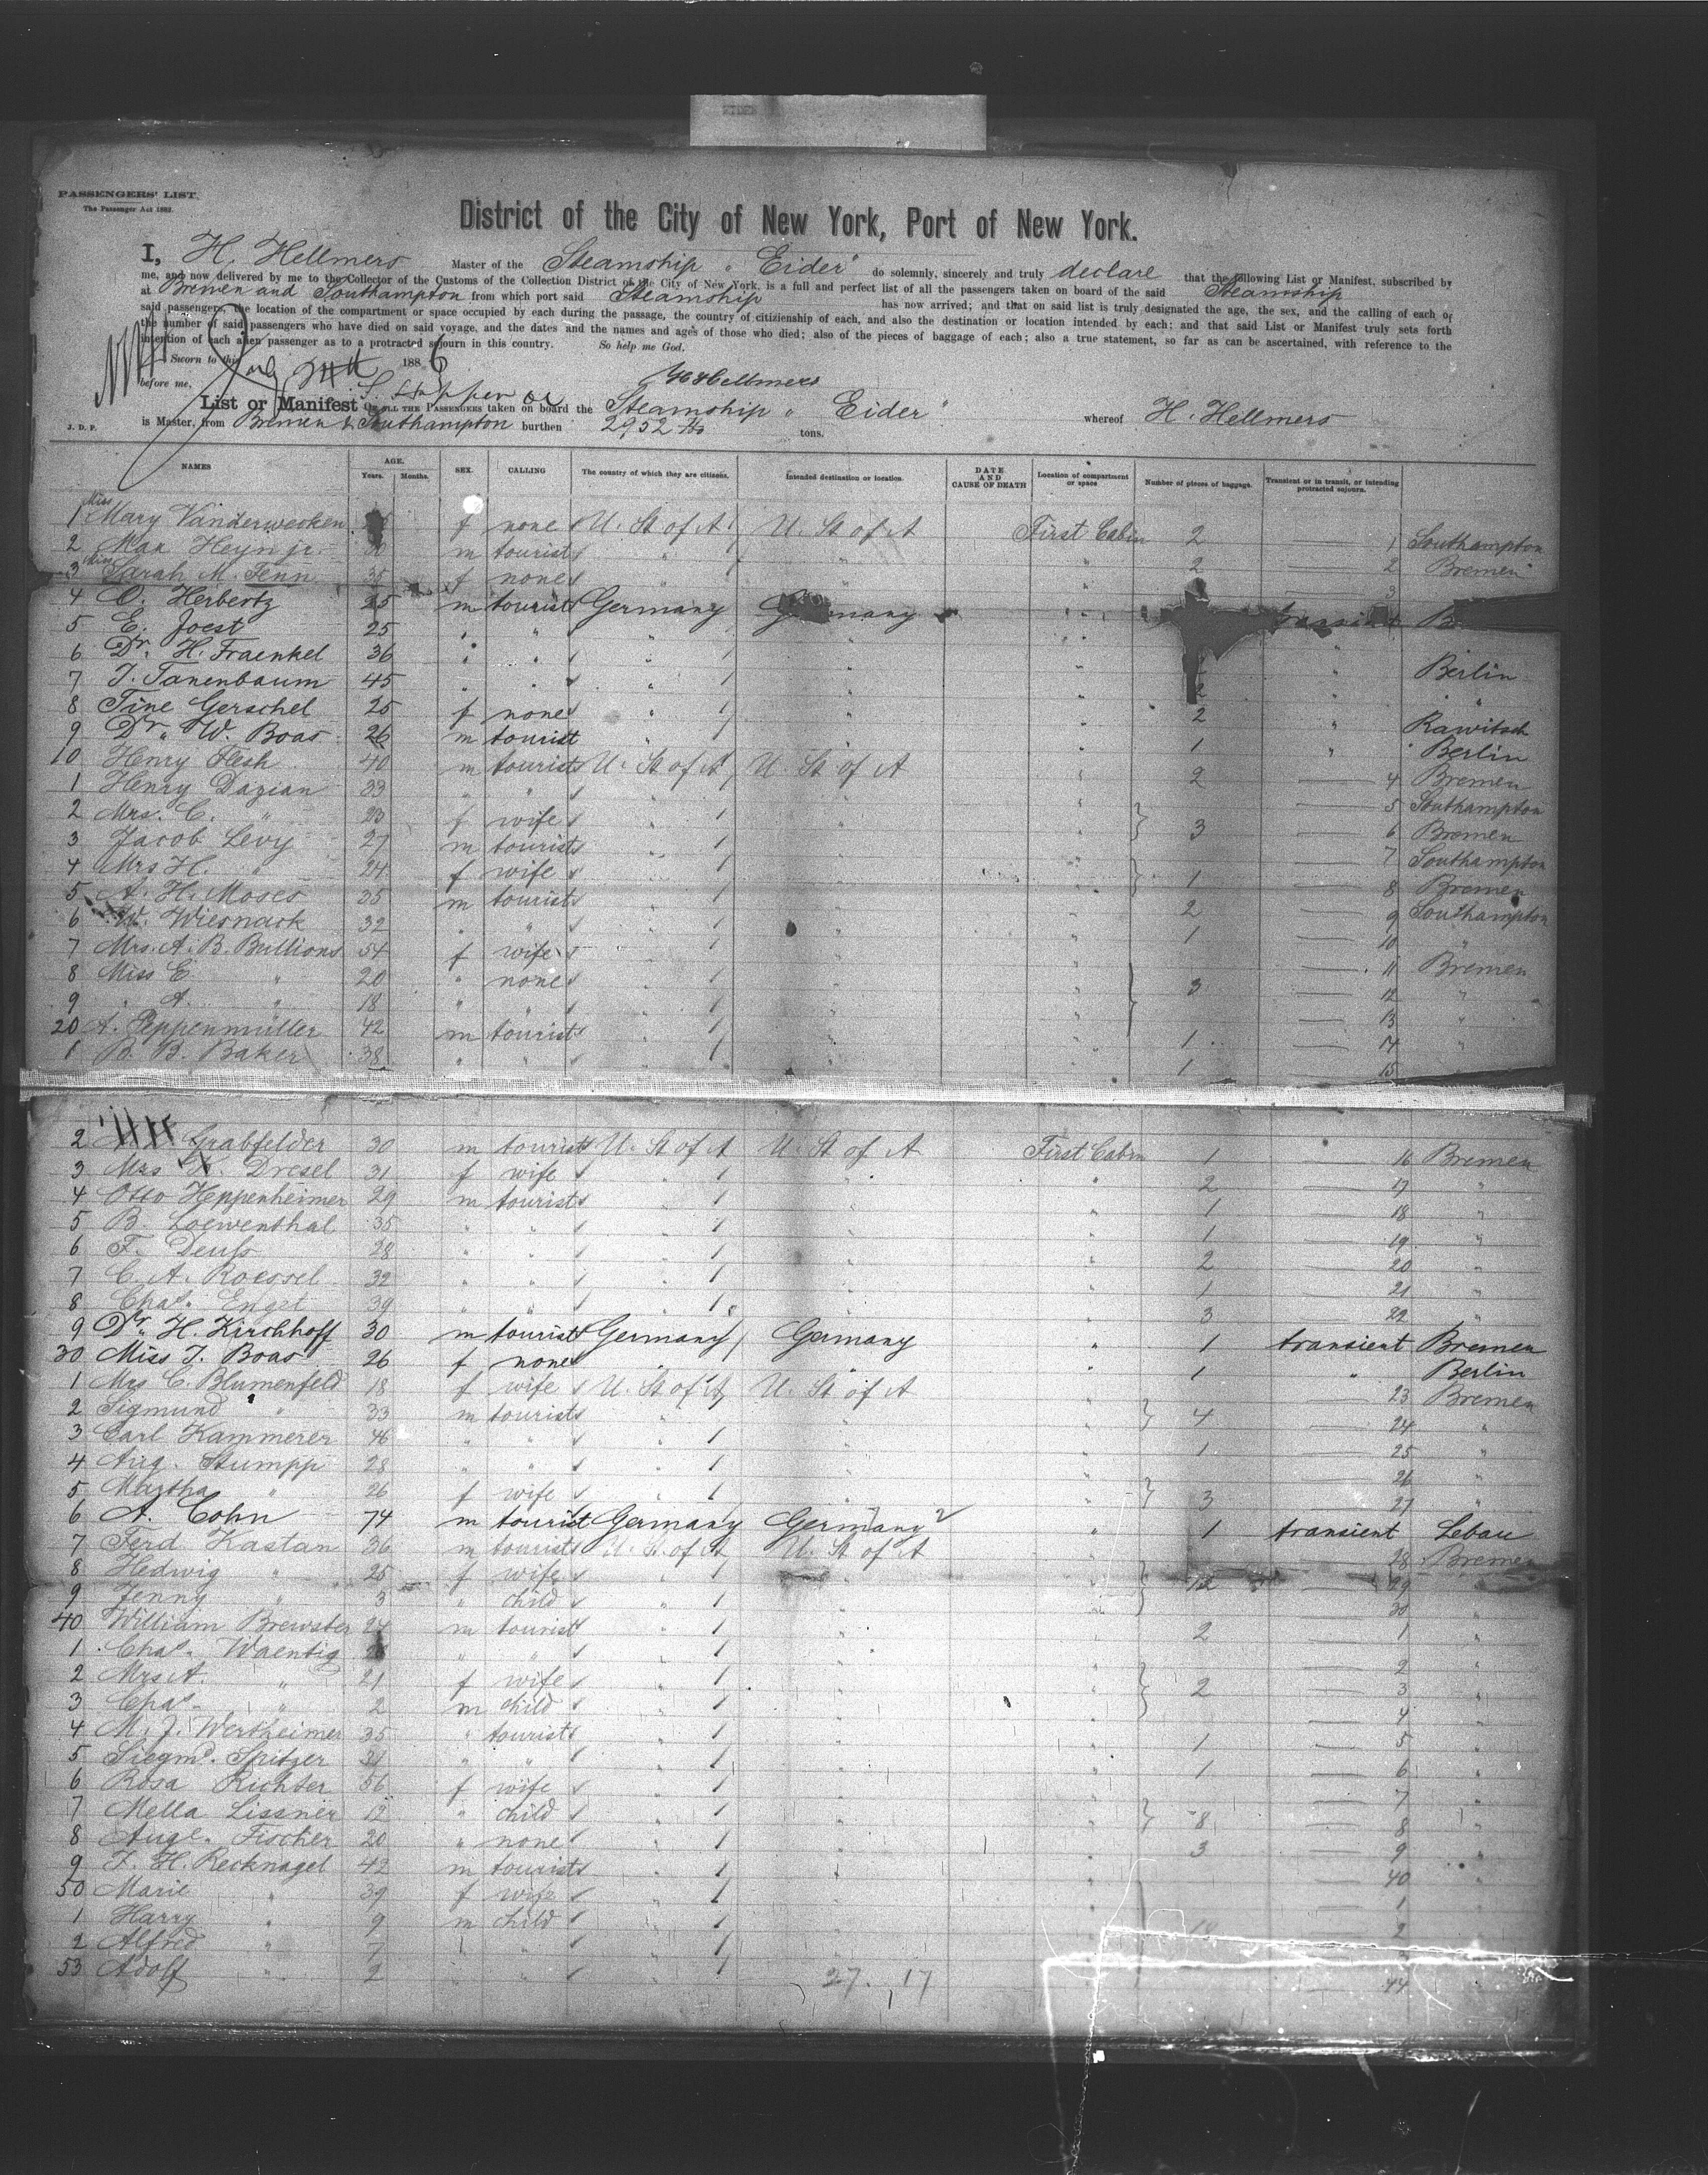 PASSENGERS' LIST.
The Passenger Act 1882.
District of the City of New York, Port of New York.
I, H. Hellmers Master of the Steamship "Eider" do solemnly, sincerely and truly declare that the following List or Manifest, subscribed by
me, and now delivered by me to the Collector of the Customs of the Collection District of the City of New York, is a full and perfect list of all the passengers taken on board of the said Steamship
at Bremen and Southampton from which port said Steamship has now arrived; and that on said list is truly designated the age, the sex, and the calling of each of
said passengers, the location of the compartment or space occupied by each during the passage, the country of citizenship of each, and also the destination or location intended by each; and that said List or Manifest truly sets forth
the number of said passengers who have died on said voyage, and the dates and the names and ages of those who died; also of the pieces of baggage of each; also a true statement, so far as can be ascertained, with reference to the
intention of each alien passenger as to a protracted sojourn in this country. So help me God.
Sworn to this 24th 1886
before me, H Hellmers
List or Manifest OF ALL THE PASSENGERS taken on board the Steamship "Eider" whereof H. Hellmers
J. D. P. is Master, from Bremen & Southampton burthen 2952 tons.
NAMES AGE. Years. Months. SEX. CALLING The country of which they are citizens. Intended destination or location. DATE AND CAUSE OF DEATH Location of compartment or space Number of pieces of baggage. Transient or in transit, or intending protracted sojourn.
1 Miss Mary Vanderwecken f none U. St of A. U. St of A First Cabin 2 1 Southampton
2 Max Heyn jr. 30 m tourist " " " 2 2 Bremen
3 Miss Sarah M. Fenn 35 f none " " " 3
4 O. Herbertz 25 m tourist Germany Germany " B
5 E. Joest 25 " " " " "
6 Dr. H. Fraenkel 36 " " " " " " Berlin
7 J. Tanenbaum 45 " " " " " 2 " "
8 Tine Gerschel 25 f none " " " 2 " Rawitsch
9 Dr. W. Boas 26 m tourist " " " 1 " Berlin
10 Henry Flesh 40 m tourist U. St of A U. St of A 2 4 Bremen
1 Henry Dazian 33 " " " " " 5 Southampton
2 Mrs. C. " 23 f wife " " " 3 6 Bremen
3 Jacob Levy 27 m tourist " " " 7 Southampton
4 Mrs H. " 24 f wife " " " 1 8 Bremen
5 A. H. Moses 35 m tourist " " " 2 9 Southampton
6 W. Wiesnack 32 " " " " " 1 10 "
7 Mrs. A. B. Bullions 54 f wife " " " 11 Bremen
8 Miss E. " 20 " none " " " 3 12 "
9 " A. " 18 " " " " " 13 "
20 A. Peppenmüller 42 m tourist " " " 1 14 "
1 B. B. Baker 38 " " " " " 1 15
2 Grabfelder 30 m tourist U. St of A U. St of A First Cabin 1 16 Bremen
3 Mrs Dresel 31 f wife " " " 2 17 "
4 Otto Heppenheimer 29 m tourist " " " 1 18 "
5 B. Loewenthal 35 " " " " " 1 19 "
6 F. Deuss 28 " " " " " 2 20 "
7 C. A. Roessel 32 " " " " " 1 21 "
8 Chas. Engel 39 " " " " " 3 22 "
9 Dr. H. Kirchhoff 30 m tourist Germany Germany " 1 transient Bremen
30 Miss J. Boas 26 f none " " " 1 " Berlin
1 Mrs C. Blumenfeld 18 f wife U. St of A U. St of A " 23 Bremen
2 Sigmund " 33 m tourist " " " 4 24 "
3 Carl Kammerer 46 " " " " " 1 25 "
4 Aug. Stumpp 28 " " " " " 26 "
5 Martha " 26 f wife " " " 3 27 "
6 A. Cohn 74 m tourist Germany Germany " 1 transient Lebau
7 Ferd. Kastan 36 m tourist U. St of A U. St of A 28 Bremen
8 Hedwig " 25 f wife " " " 12 29 "
9 Jenny " 3 " child " " " 30 "
40 William Brewster 27 m tourist " " " 2 1 "
1 Chas. Waentig " " " " " 2 "
2 Mrs A. " 21 f wife " " " 2 3 "
3 Chas. " 2 m child " " " 4 "
4 M. J. Wertheimer 35 " tourist " " " 1 5 "
5 Siegmd. Spitzer " " " " " 1 6 "
6 Rosa Richter 56 f wife " " " 7 "
7 Mella Lissner 12 " child " " " 8 8 "
8 Auge. Fischer 20 " none " " " 3 9 "
9 F. H. Recknagel 42 m tourist " " " 40 "
50 Marie " 39 f wife " " " 1 "
1 Harry " 9 m child " " " 2
2 Alfred " 7 " " "
53 Adolf " 2 " " " 27. 17 44